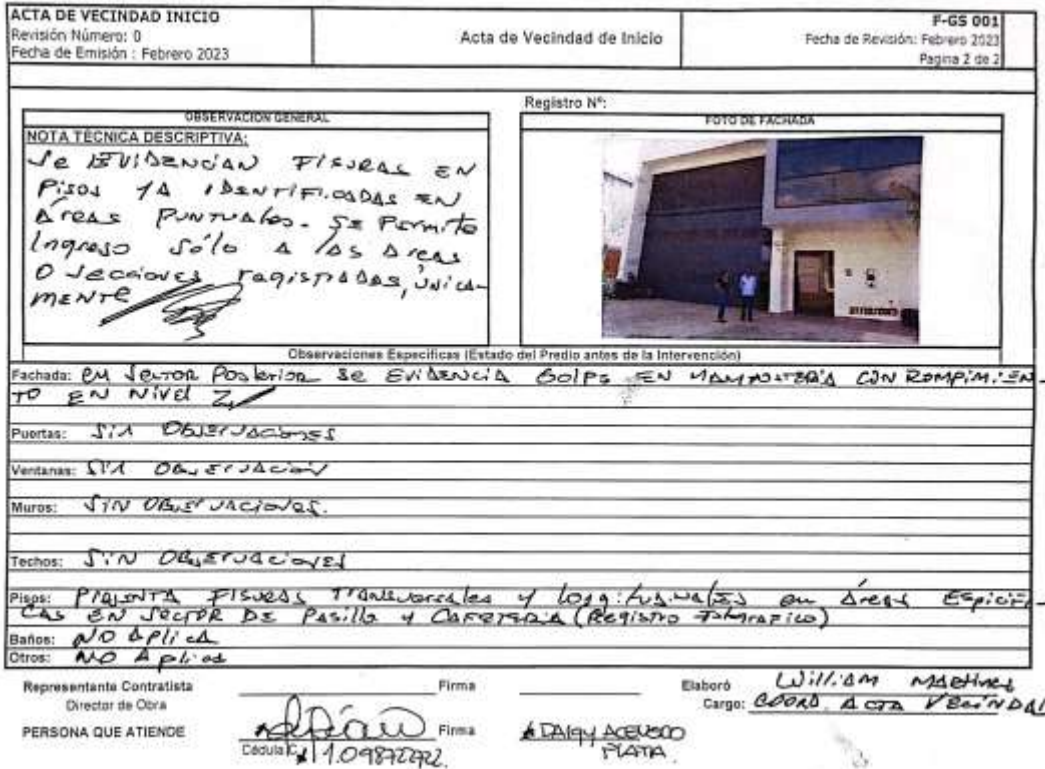 ACTA DE VECINDAD INICIO
Revisión Número: 0
Fecha de Emisión : Febrero 2023
Acta de Vecindad de Inicio
F-GS 001
Fecha de Revisión: Febrero 2023
Pagina 2 de 2
Registro Nº:
OBSERVACION GENERAL
NOTA TÉCNICA DESCRIPTIVA:
Se EVIDENCIAN FISURAS EN
PISOS YA IDENTIFICADAS EN
ÁREAS PUNTUALES. SE PERMITE
Ingreso sólo A LAS AREAS
O SECCIONES REGISTRADAS, ÚNICA-
MENTE
FOTO DE FACHADA
Observaciones Especificas (Estado del Predio antes de la Intervención)
Fachada: EN SECTOR POSTERIOR SE EVIDENCIA GOLPE EN MAMPOSTERÍA CON ROMPIMIEN-
TO EN NIVEL 2
Puertas: SIN OBSERVACIONES
Ventanas: SIN OBSERVACION
Muros: SIN OBSERVACIONES.
Techos: SIN OBSERVACIONES
Pisos: PRESENTA FISURAS TRANSVERSALES Y LONGITUDINALES EN ÁREAS ESPECÍFI-
CAS EN SECTOR DE PASILLO Y CAFETERIA (REGISTRO FOTOGRAFICO)
Baños: NO APLICA
Otros: NO APLICA
Representante Contratista
Director de Obra
Firma
Elaboró William MARTINEZ
Cargo: COORD. ACTA VECINDAD
PERSONA QUE ATIENDE
Firma
Cédula C
DAISY ACEVEDO
PLATA.